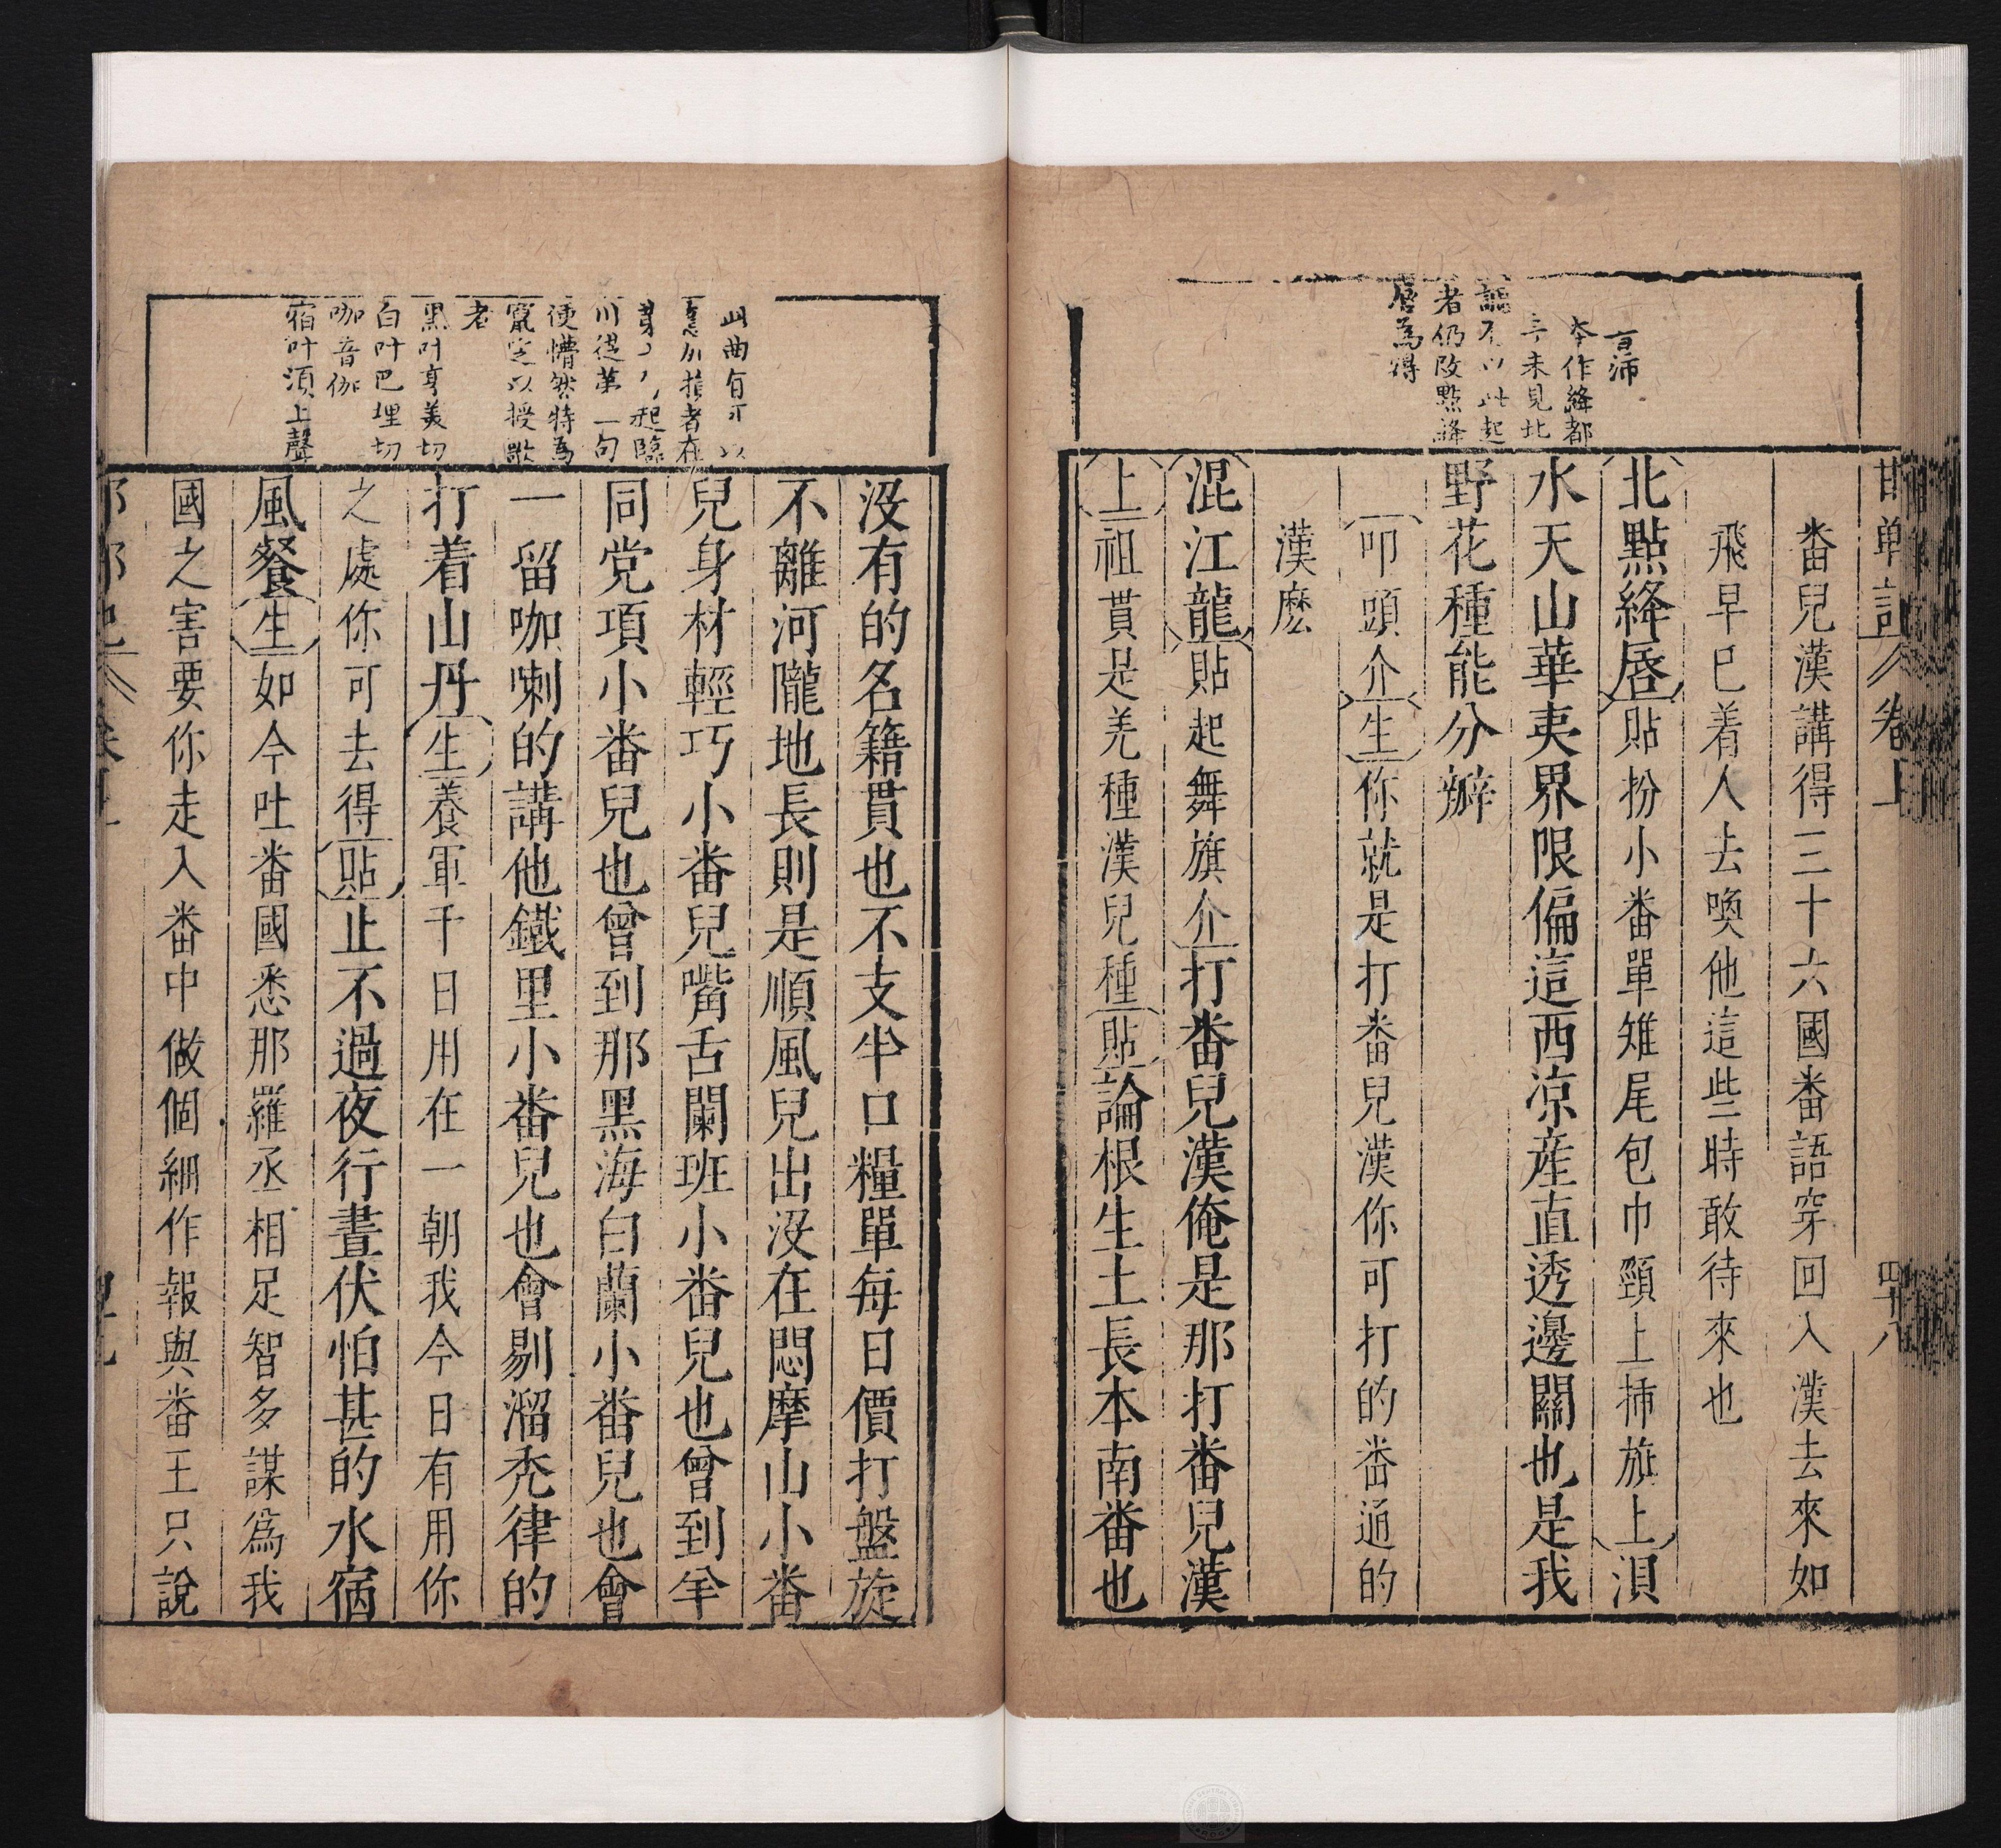 邯鄲記 卷上 四十八
番兒漢講得三十六國番語穿回入漢去來如
飛早已着人去喚他這些時敢待來也
北點絳唇貼扮小番單雉尾包巾頸上揷旗上湏
水天山華夷界限偏這西凉産直透邊關也是我
野花種能分辧
叩頭介生你就是打番兒漢你可打的番通的
漢麽
混江龍貼起舞旗介打番兒漢俺是那打番兒漢
上祖貫是羌種漢兒種貼論根生土長本南番也
本作絳都
未見北
起
者仍改點絳
唇爲得
没有的名籍貫也不支半口糧單每日價打盤旋
不離河隴地長則是順風兒出没在悶摩山小番
兒身材輕巧小番兒嘴舌闌班小番兒也曾到羊
同党項小番兒也曾到那黑海白蘭小番兒也會
一留咖喇的講他鐵里小番兒也會剔溜禿律的
打着山丹生養軍千日用在一朝我今日有用你
之處你可去得貼止不過夜行晝伏怕甚的水宿
風餐生如今吐番國悉那羅丞相足智多謀爲我
國之害要你走入番中做個細作報與番王只說
此曲有可以
意加損者在
起臨
川從第一句
便懵然特爲
竄定以授歌
者
黑叶亨美切
白叶巴埋切
咖音伽
宿叶湏上聲